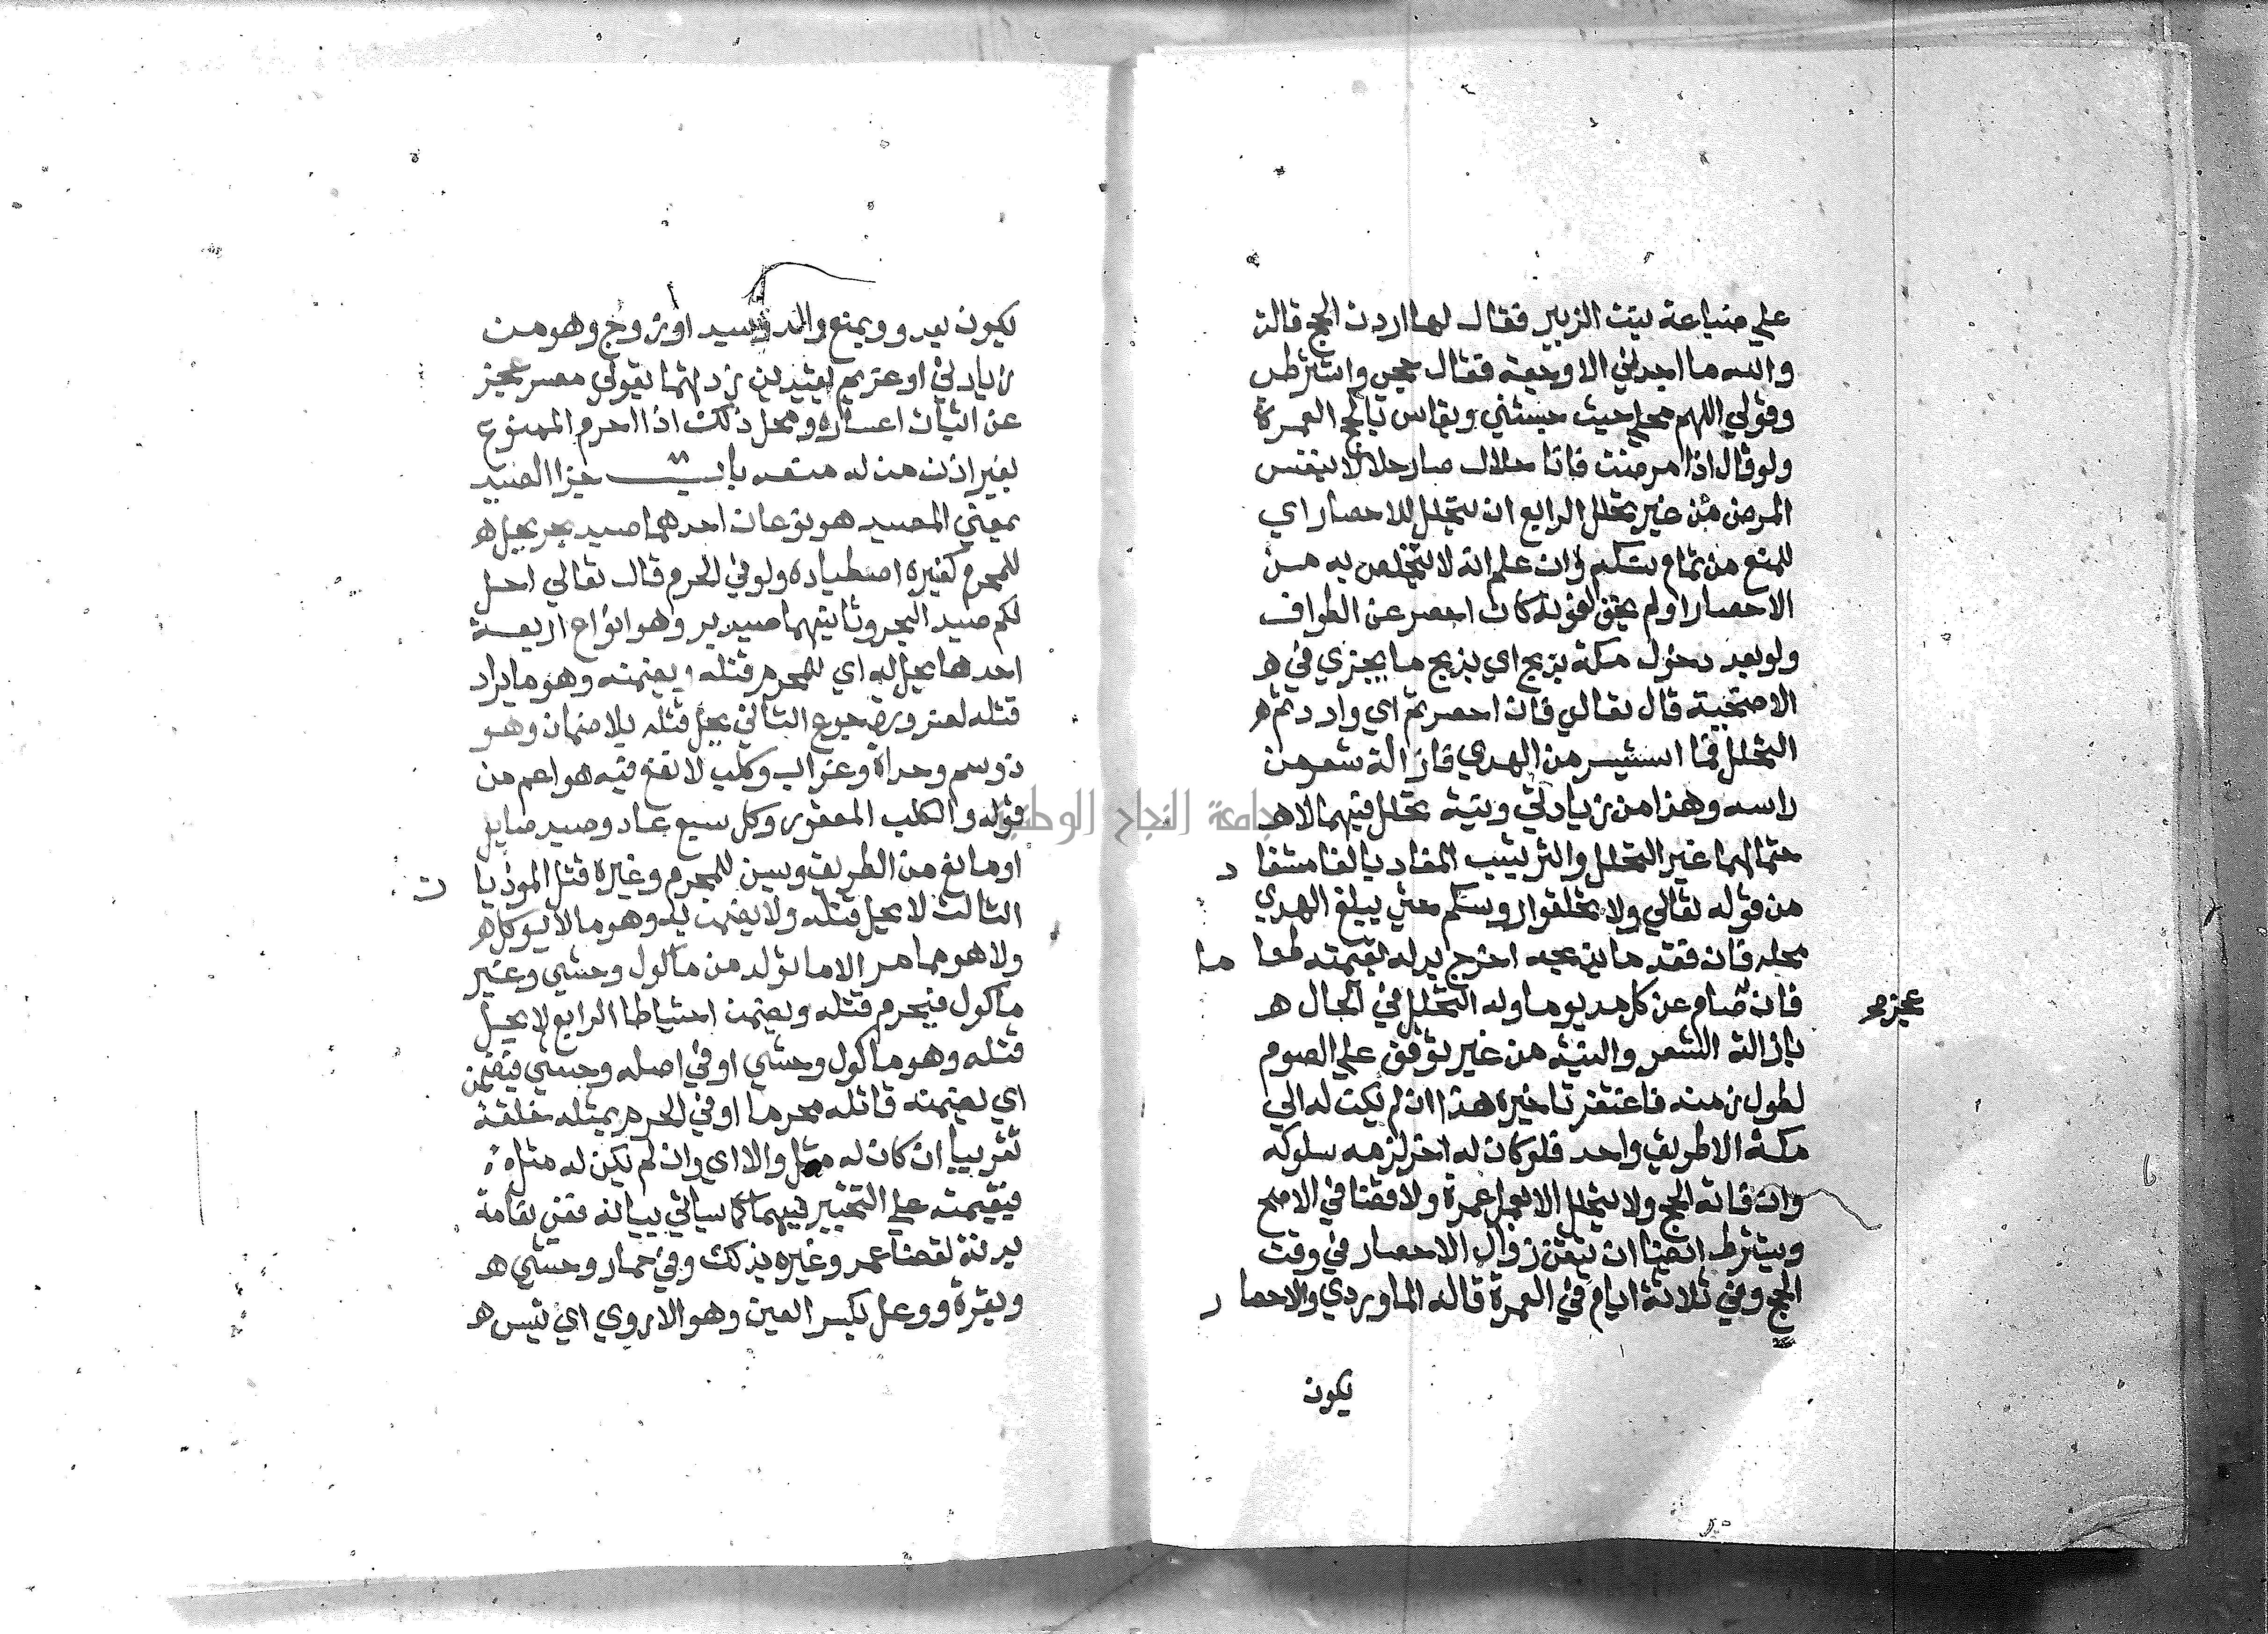 علي ضباعة بنت الزبير فقال لها اردت الحج قالت
والله ما اجدني الا وجعة فقال حجي واشترطي
وقولي اللهم محلي حيث حبستني ويقاس بالحج العمرة
ولو قال اذا مرضت فانا حلال صار حلالا بنفس
المرض من غير تحلل الرابع ان يتحلل للاحصار اي
للمنع من تمام نسكه وان علم انه لا يتخلص به من
الاحصار او لم يخف الفوت كان احصر عن الطواف
ولو بعد دخول مكة بذبح اي بذبح ما يجزي في ه
الاضحية قال تعالي فان احصرتم اي واردتم ه
التحلل فما استيسر من الهدي فازالة شعر من
راسه وهذا من زيادتي ونية تحلل فيهما لا ه
حتمالهما غير التحلل والترتيب المفاد بالفا مستفا د
من قوله تعالي ولا تحلقوا روسكم حتي يبلغ الهدي
محله فان فقد ما يذبحه اخرج بدله بقيمته طعا ما
فان عجز صح صام عن كل مد يوما وله التحلل في الحال ه
بازالة الشعر والنية من غير توقف علي الصوم
لطول زمنه فاغتفر تاخيره هذا ان لم يكن له الي
مكة الا طريق واحد فلو كان له اخر لزمه سلوكه
وان فاته الحج ولا يتحلل الا بعمل عمرة ولا قضا في الاصح
ويشترط ايضا ان يتقن زوال الاحصار في وقت
الحج وفي ثلاثة ايام في العمرة قاله الماوردي والاحصا ر
يكون
يكون بعدو ويمنع والد وسيد او زوج وهو من
زيادتي او غريم بقيدين زدتهما بقولي معسر عجز
عن اثبات اعساره ومحل ذلك اذا احرم الممنوع
بغير اذن من له منعه باب جزا الصيد
بمعني المصيد هو نوعان احدهما صيد بحر يحل ه
للمحرم كغيره اصطياده ولو في الحرم قال تعالي احل
لكم صيد البحر وثانيهما صيد بر وهو انواع اربعة
احدها يحل له اي للمحرم قتله ويضمنه وهو ما يراد
قتله لضرورة جوع الثاني يحل قتله بلا ضمان وهو
ذو سم وحداة وغراب وكلب لا نفع فيه هو اعم من
قوله والكلب العقور وكل سبع عاد وصيد صايل
او مانع من الطريق ويسن للمحرم وغيره قتل الموذيا ت
الثالث لا يحل قتله ولا يضمن به وهو ما لا يوكل ه
ولا هو مما مر الا ما تولد من ماكول وحشي وغير
ماكول فيحرم قتله ويضمن احتياطا الرابع لا يحل
قتله وهو ماكول وحشي او في اصله وحشي فيضمن
اي يضمنه قاتله محرما او في الحرم بمثله خلقة
تقريبا ان كان له مثل والا اي وان لم يكن له مثل
فبقيمته علي التخيير فيهما كما سياتي بيانه ففي نعامة
بدنة لقضا عمر وغيره بذلك وفي حمار وحشي ه
وبقرة ووعل بكسر العين وهو الاروي اي تيس ه